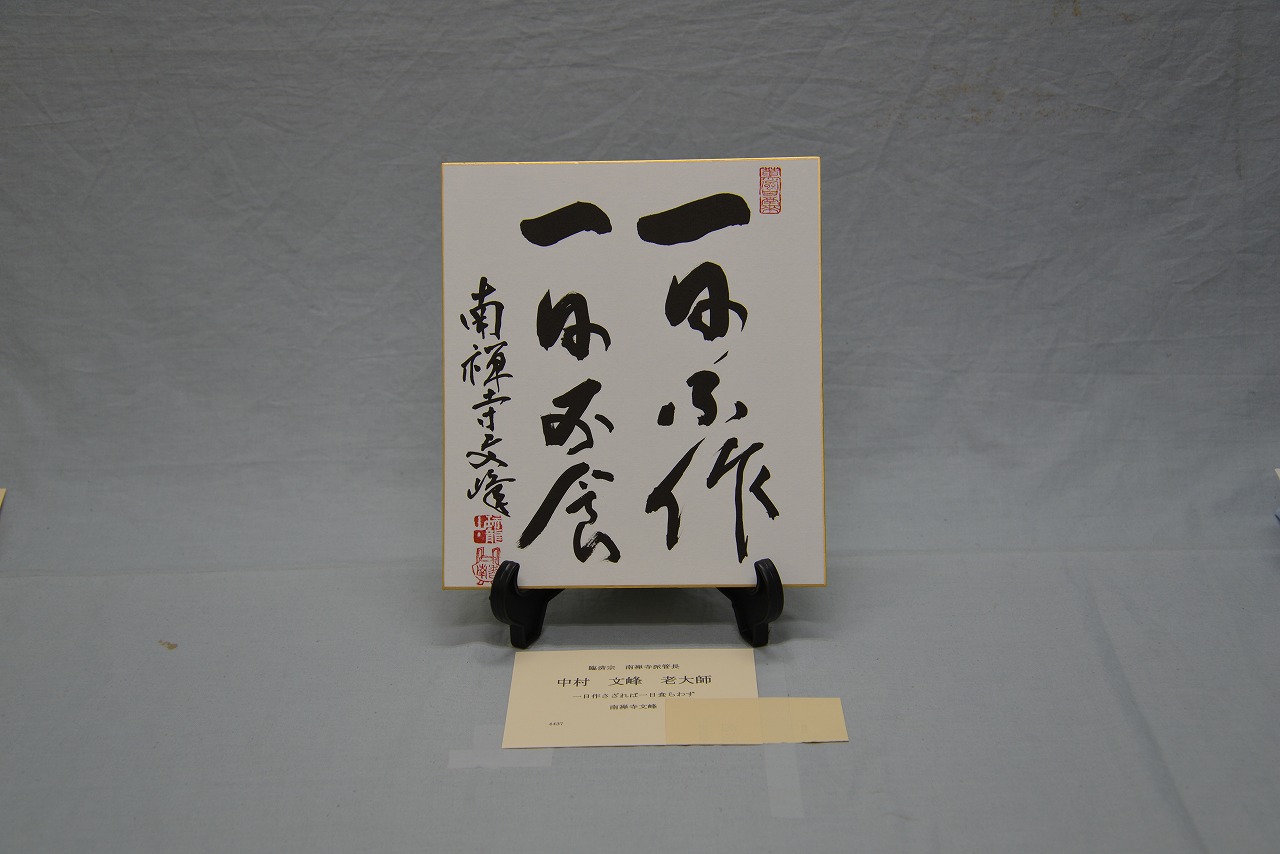 一日不作
一日不食
南禅寺文峰
臨済宗　南禅寺派管長
中村　文峰　老大師
一日作さざれば一日食らわず
南禅寺文峰